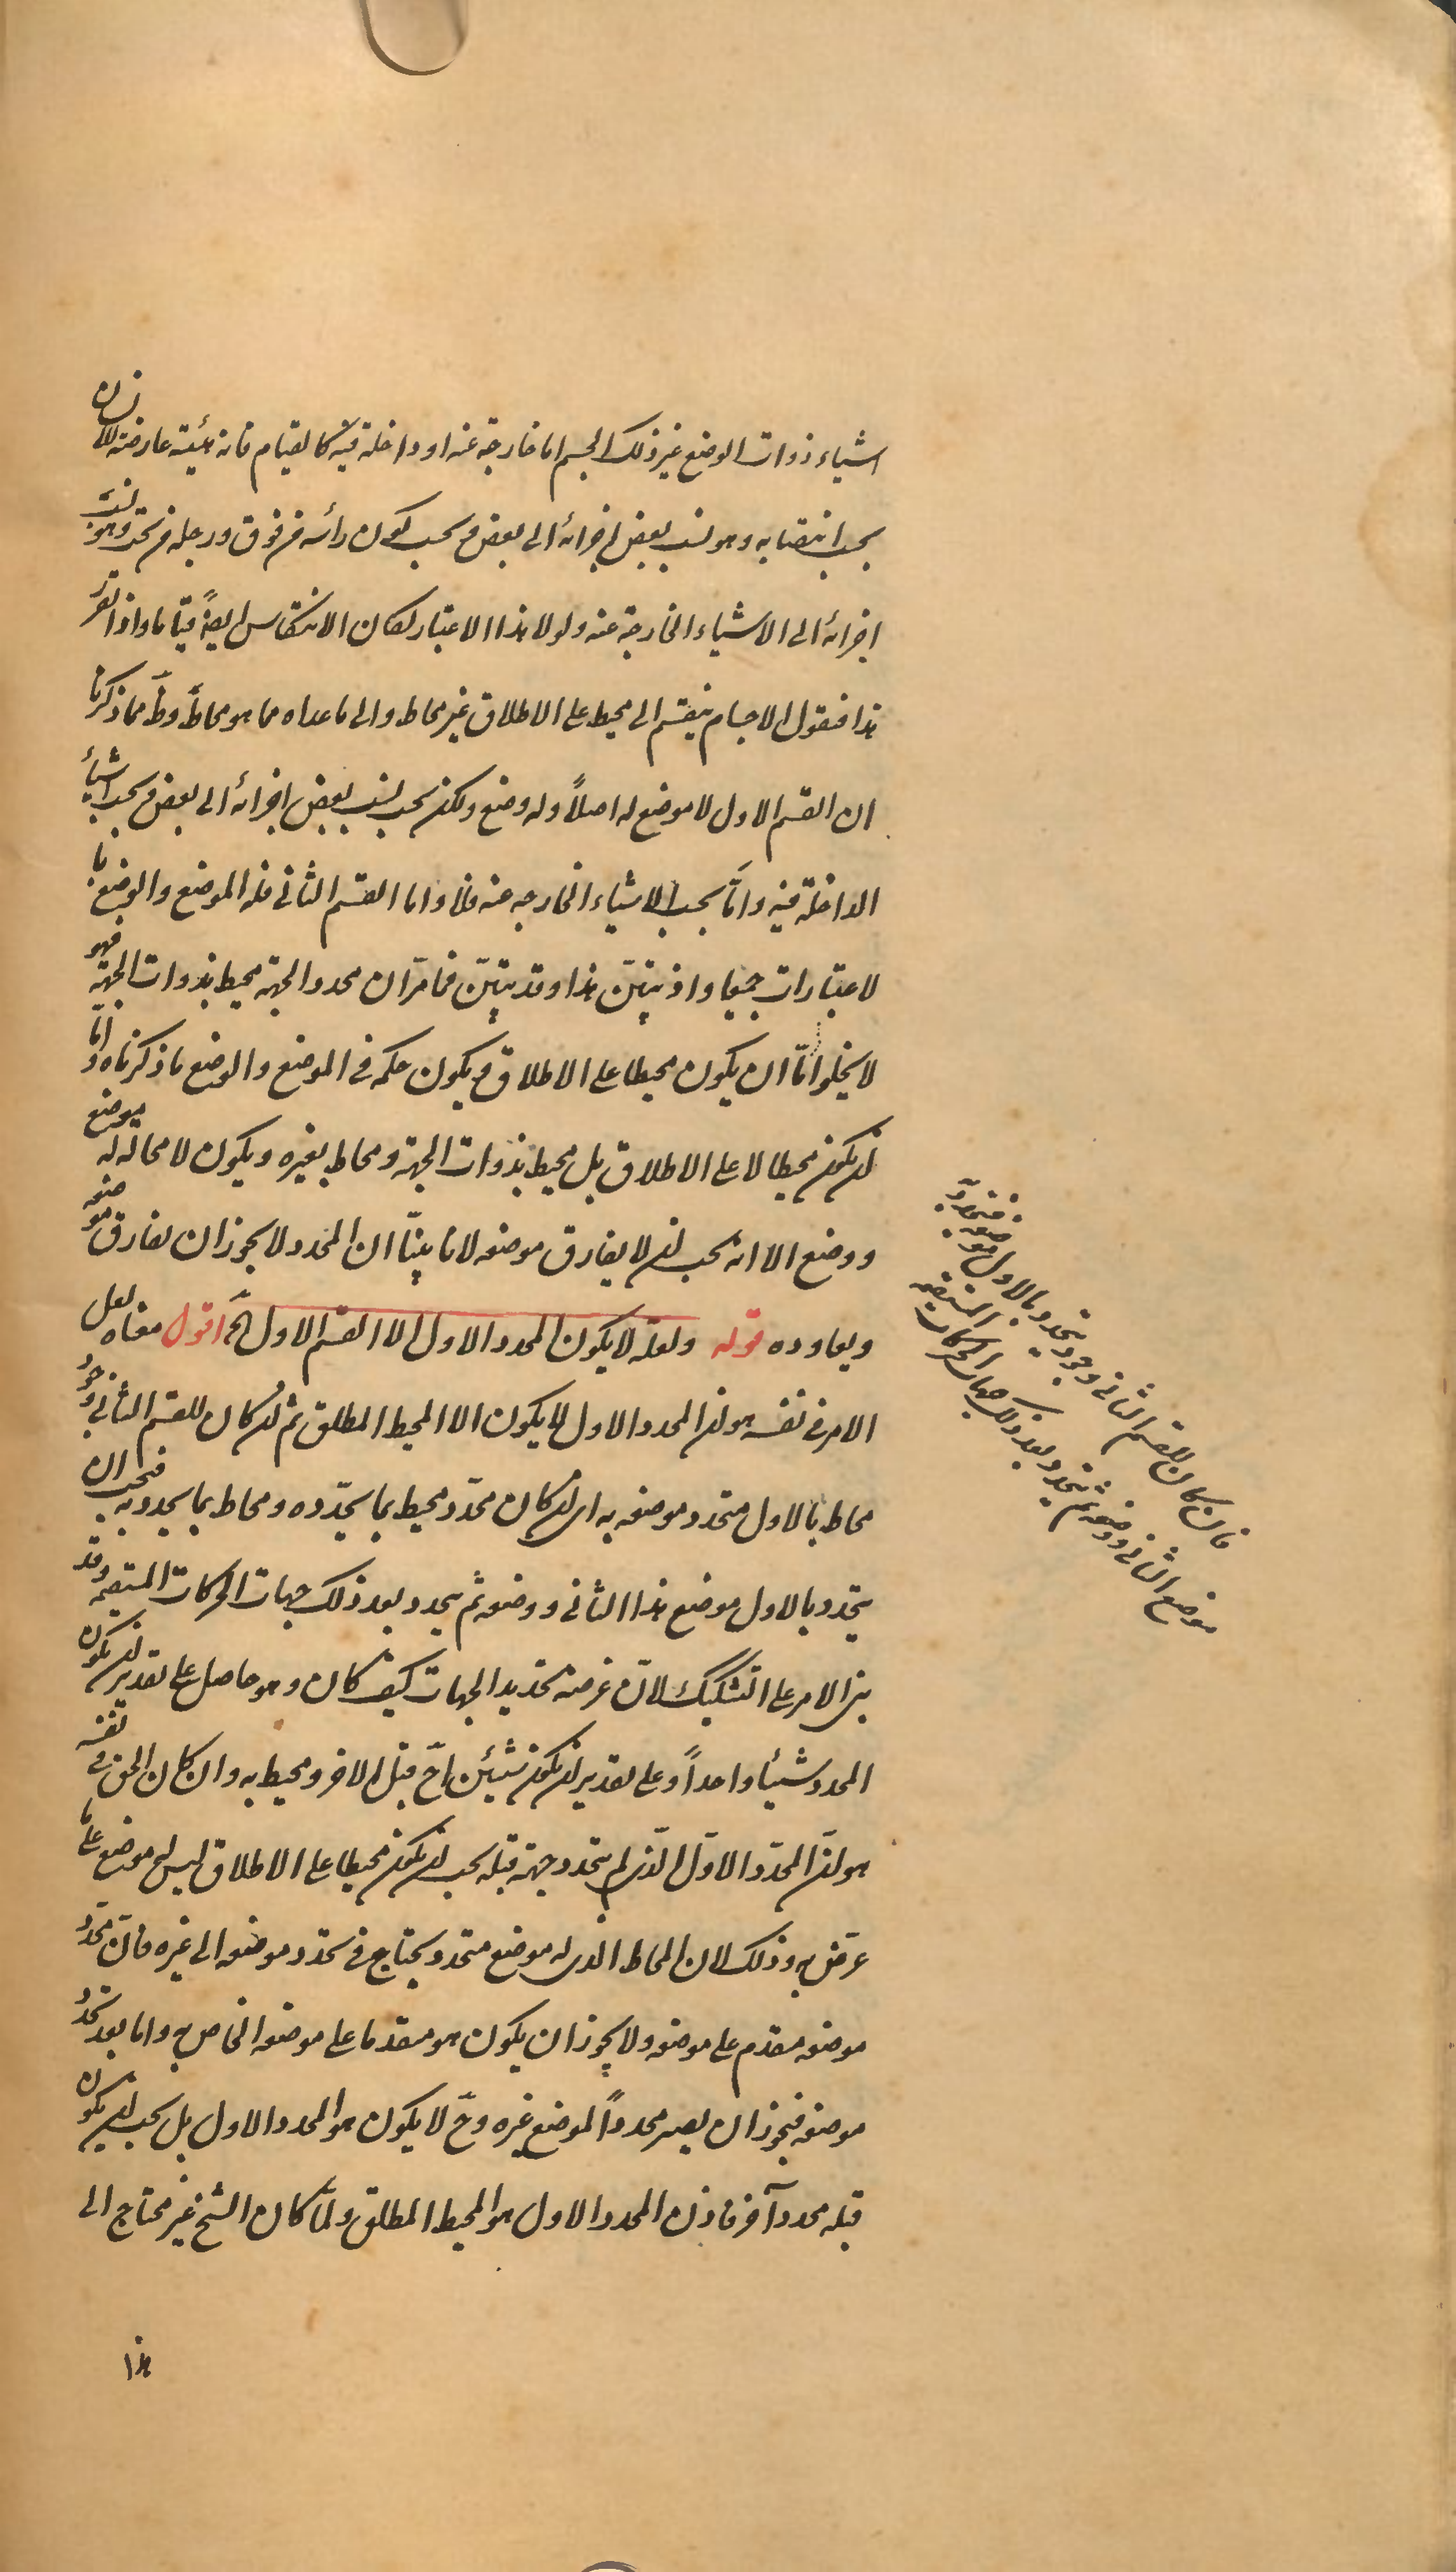 اشیاء ذوات الوضع غیر ذلک الجسم اما خارجة عنه او داخلة فیه کالقیام فانه هیئة عارضة للانسان
بحسب انتصابه وهو نسب بعض اجزائه الی بعض و بحسب کون رأسه من فوق ورجله من تحت وهو نسبة
اجزائه الی الاشیاء الخارجة عنه ولولا هذا الاعتبار لکان الانتکاس ایضاً قیاما واذا تقرر
هذا فنقول الاجسام ینقسم الی محیط علی الاطلاق غیر محاط والی ماعداه مما هو محاط وظ مما ذکرنا
ان القسم الاول لا موضع له اصلاً وله وضع ولکن بحسب نسب بعض اجزائه الی بعض و بحسب اشیاء
الداخلة فیه واما بحسب الاشیاء الخارجه عنه فلا واما القسم الثانی فله الموضع والوضع با
لاعتبارات جمیعا واذ تبیّن هذا وقد تبیّن فما مرّ ان محدد الجهة محیط بذوات الجهة فهو
لا یخلوا امّا ان یکون محیطا علی الاطلاق و یکون حکمه فی الموضع والوضع ما ذکرناه و امّا
ان یکون محیطا لا علی الاطلاق بل محیط بذوات الجهة و محاط بغیره و یکون لا محالة له موضع
و وضع الا انه یحب ان لا یفارق موضعه لانا بیّنّا ان المحدد لا یجوز ان یفارق موضعه
و یعاوده قوله ولعله لا یکون المحدد الاول الا القسم الاول الخ اقول معناه لعل
الامر فی نفسه هو ان المحدد الاول لا یکون الا المحیط المطلق ثم ان کان للقسم الثانی وجود
محاط بالاول متحدد موضعه به ای ان کان محدّد محیط بما یحدّده و محاط بما یحدد به فیجب ان
یتحدد بالاول موضع هذا الثانی و وضعه ثم یحدد بعد ذلک جهات الحرکات المستقیمه وقد
بنی الامر علی التشکیک لانّ غرضه تحدید الجهات کیف کان و هو حاصل علی تقدیر ان یکون
المحدد شیئا واحداً و علی تقدیر ان یکون شیئین احد قبل الاخر و محیط به وان کان الحق فی نفسه
هو ان المحدّد الاوّل الّذی لم یتحدد جهة قبله یجب ان یکون محیطا علی الاطلاق لیس له موضع علی ما
عرّض به وذلک لان المحاط الذی له موضع متحدد یحتاج فی تحدد موضعه الی غیره فانّ محدّد
موضعه مقدم علی موضعه ولا یجوز ان یکون هو مقدما علی موضعه الخاص به واما بعد تحدد
موضعه فیجوز ان یصیر محدداً لموضع غیره وح لا یکون هو المحدد الاول بل یجب ان یکون
قبله محدد آخر فاذن المحدد الاول هو المحیط المطلق ولمّا کان الشیخ غیر محتاج الی
فان کان للقسم الثانی وجود یتحدد بالاول موضعه فیتحدد به
موضع الثانی و وضعه ثم یتحدد بعد ذلک جهات الحرکات المستقیمه